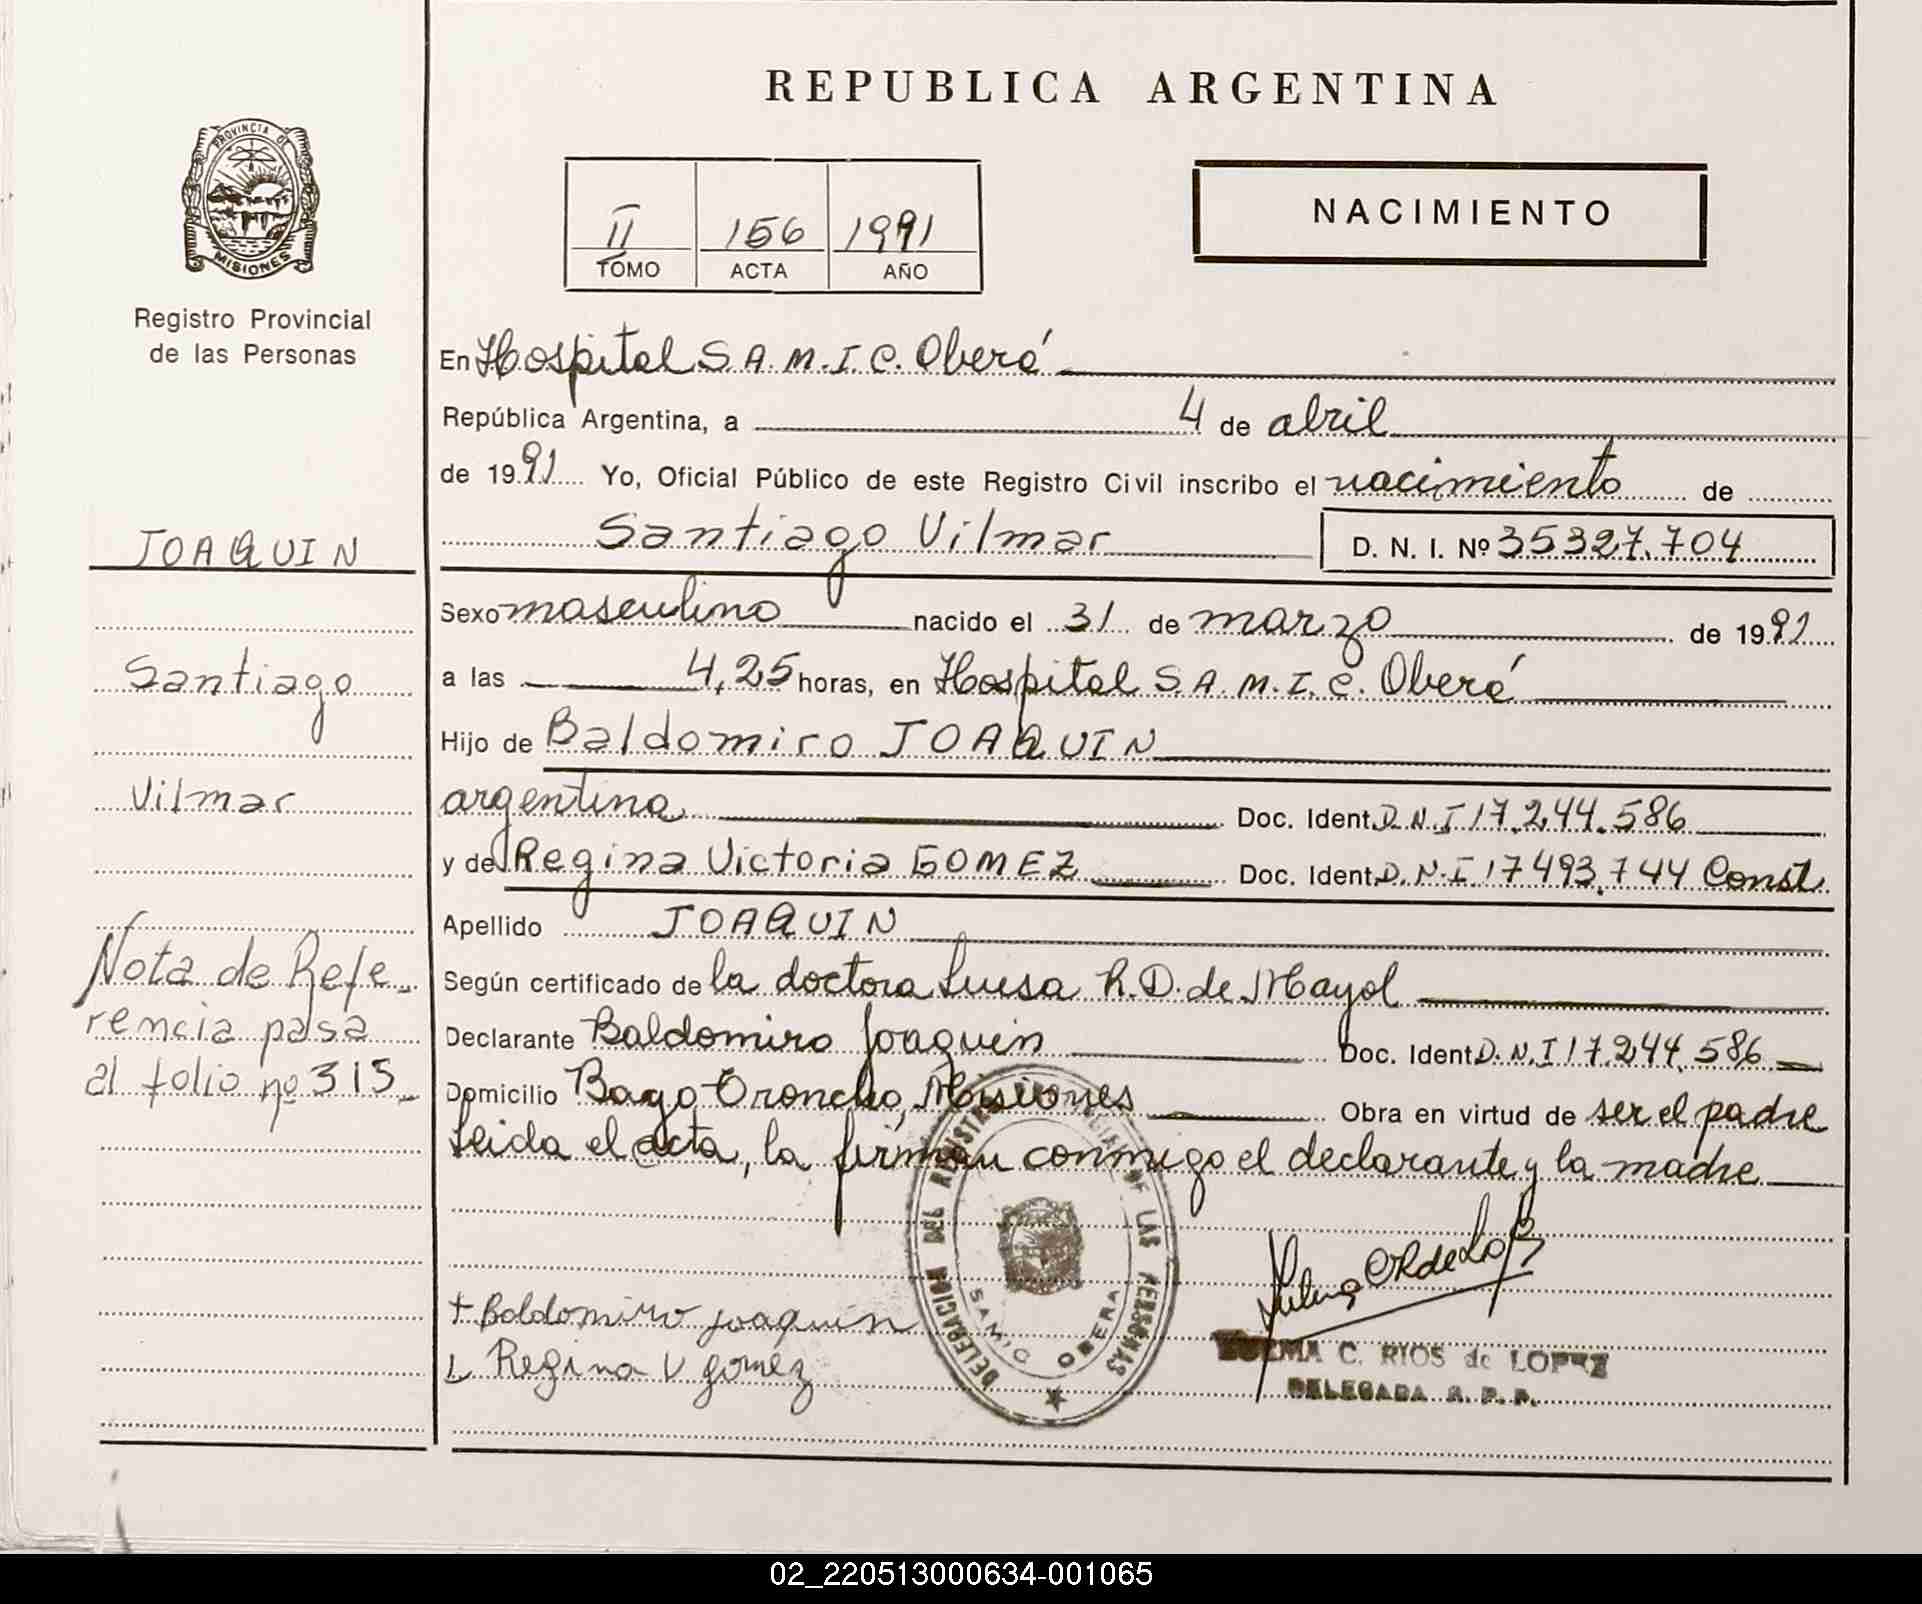 REPUBLICA ARGENTINA
PROVINCIA DE
MISIONES
Registro Provincial
de las Personas
II 156 1991
TOMO ACTA AÑO
NACIMIENTO
En Hospital S.A.M.I.C. Oberá
República Argentina, a 4 de abril
de 1991 Yo, Oficial Público de este Registro Civil inscribo el nacimiento de
Santiago Vilmar D. N. I. Nº 35327.704
Sexo masculino nacido el 31 de marzo de 1991
a las 4,25 horas, en Hospital S.A.M.I.C. Oberá
Hijo de Baldomiro JOAQUIN
argentina Doc. Ident. D.N.I 17.244.586
y de Regina Victoria GOMEZ Doc. Ident. D.N.I 17493.744 Const.
Apellido JOAQUIN
Según certificado de la doctora Luisa R.D. de Mayol
Declarante Baldomiro Joaquin Doc. Ident. D.N.I 17.244.586
Domicilio Bago Oroncho, Misiones Obra en virtud de ser el padre
Leida el acta, la firman conmigo el declarante y la madre
+ Baldomiro Joaquin
Regina V gomez
DELEGACION DEL REGISTRO PROVINCIAL DE LAS PERSONAS
SAMIC OBERA
ZULMA C. RIOS de LOPEZ
DELEGADA R. P. P.
JOAQUIN
Santiago
Vilmar
Nota de Refe-
rencia pasa
al folio nº 315
02_220513000634-001065